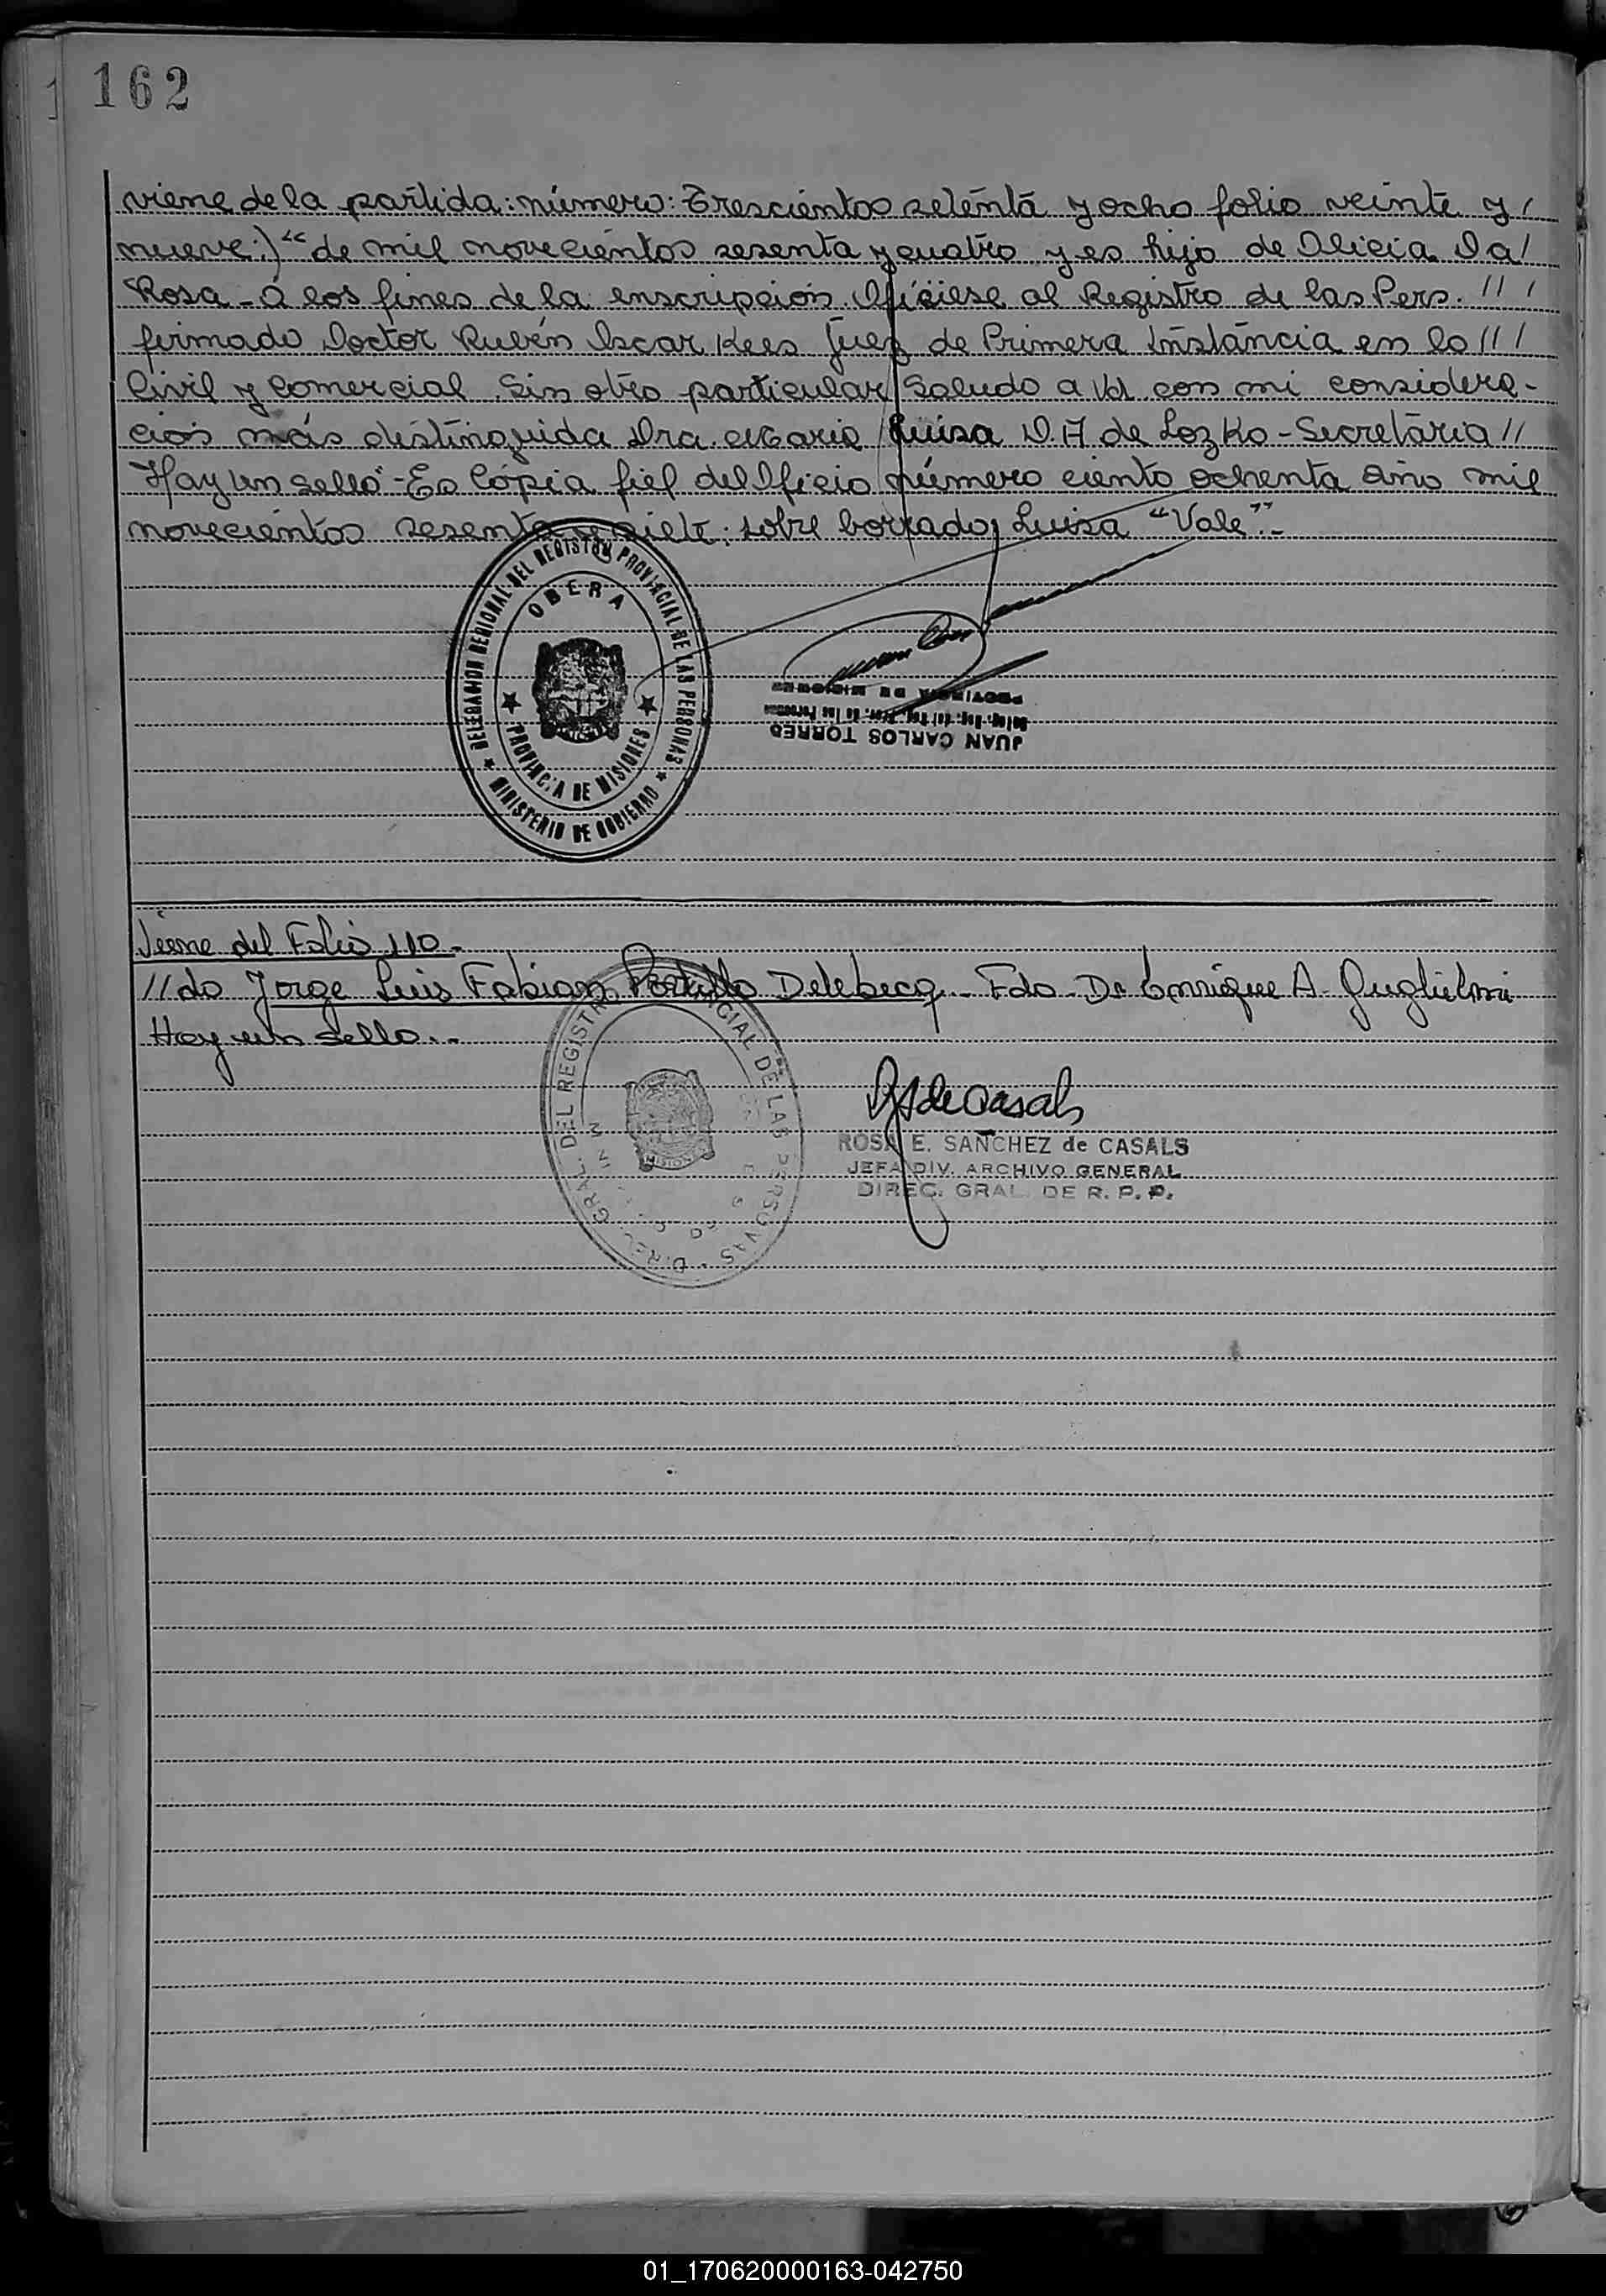 162
viene de la partida: número: Trescientos setenta y ocho folio veinte y /
nueve:) “de mil novecientos sesenta y cuatro y es hijo de Alicia Da /
Rosa - á los fines de la inscripción. Ofíciese al Registro de las Pers. // /
firmado Doctor Rubén Oscar Kees Juez de Primera Instancia en lo // /
Civil y Comercial. Sin otro particular Saludo a Vd. con mi considera-
ción más distinguida Dra. Maria Luisa D. A de Lozko - Secretaria //
Hay un sello" - Es Cópia fiel del Oficio número ciento ochenta año mil
novecientos sesenta y siete; sobre borrado; Luisa “Vale”.-
DELEGACION REGIONAL DEL REGISTRO PROVINCIAL DE LAS PERSONAS
OBERA
PROVINCIA DE MISIONES
MINISTERIO DE GOBIERNO
JUAN CARLOS TORRES
PROVINCIA DE MISIONES
Viene del Folio 110.-
//do Jorge Luis Fabian Portillo Delebecq - Fdo - Dr Enrique A. Guglielmi
Hay un sello.-
DIREC. GRAL. DEL REGISTRO PROVINCIAL DE LAS PERSONAS
RS de Casals
ROSA E. SANCHEZ de CASALS
JEFA DIV. ARCHIVO GENERAL
DIREC. GRAL. DE R. P. P.
01_170620000163-042750